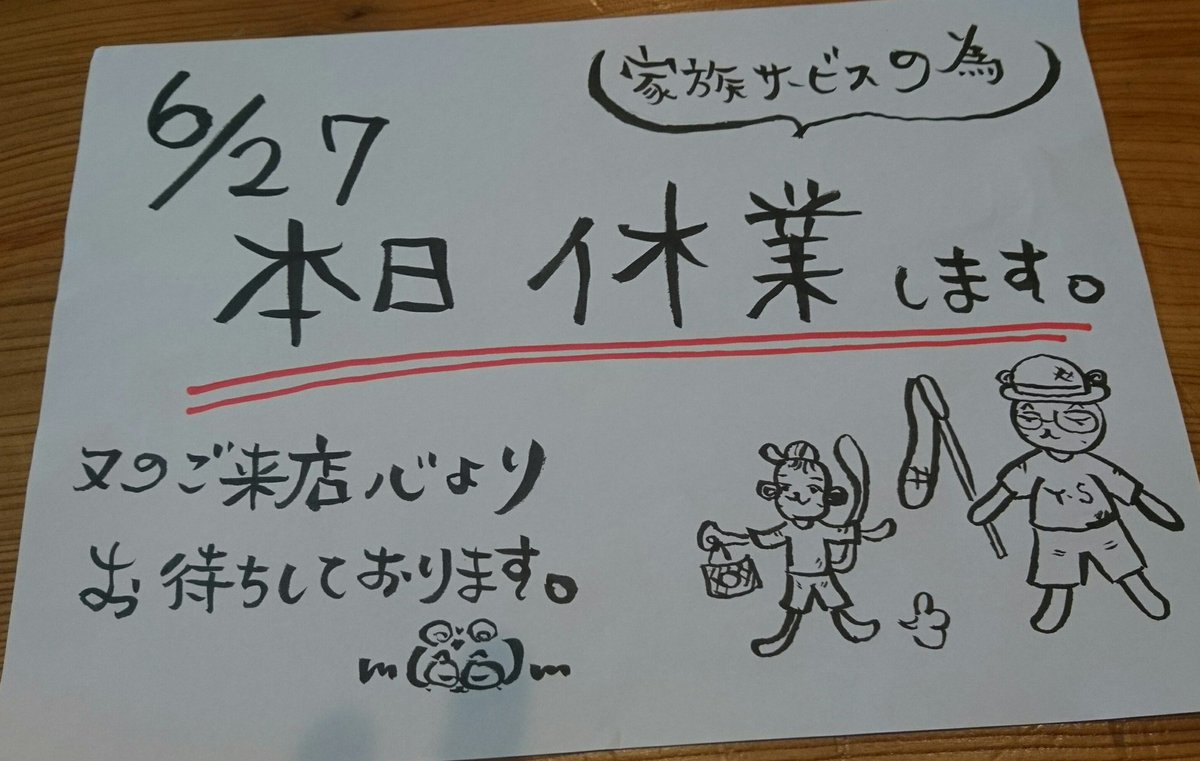 6/27
家族サービスの為
本日 休業します。
又のご来店心より
お待ちしております。
m( )m
Y・S